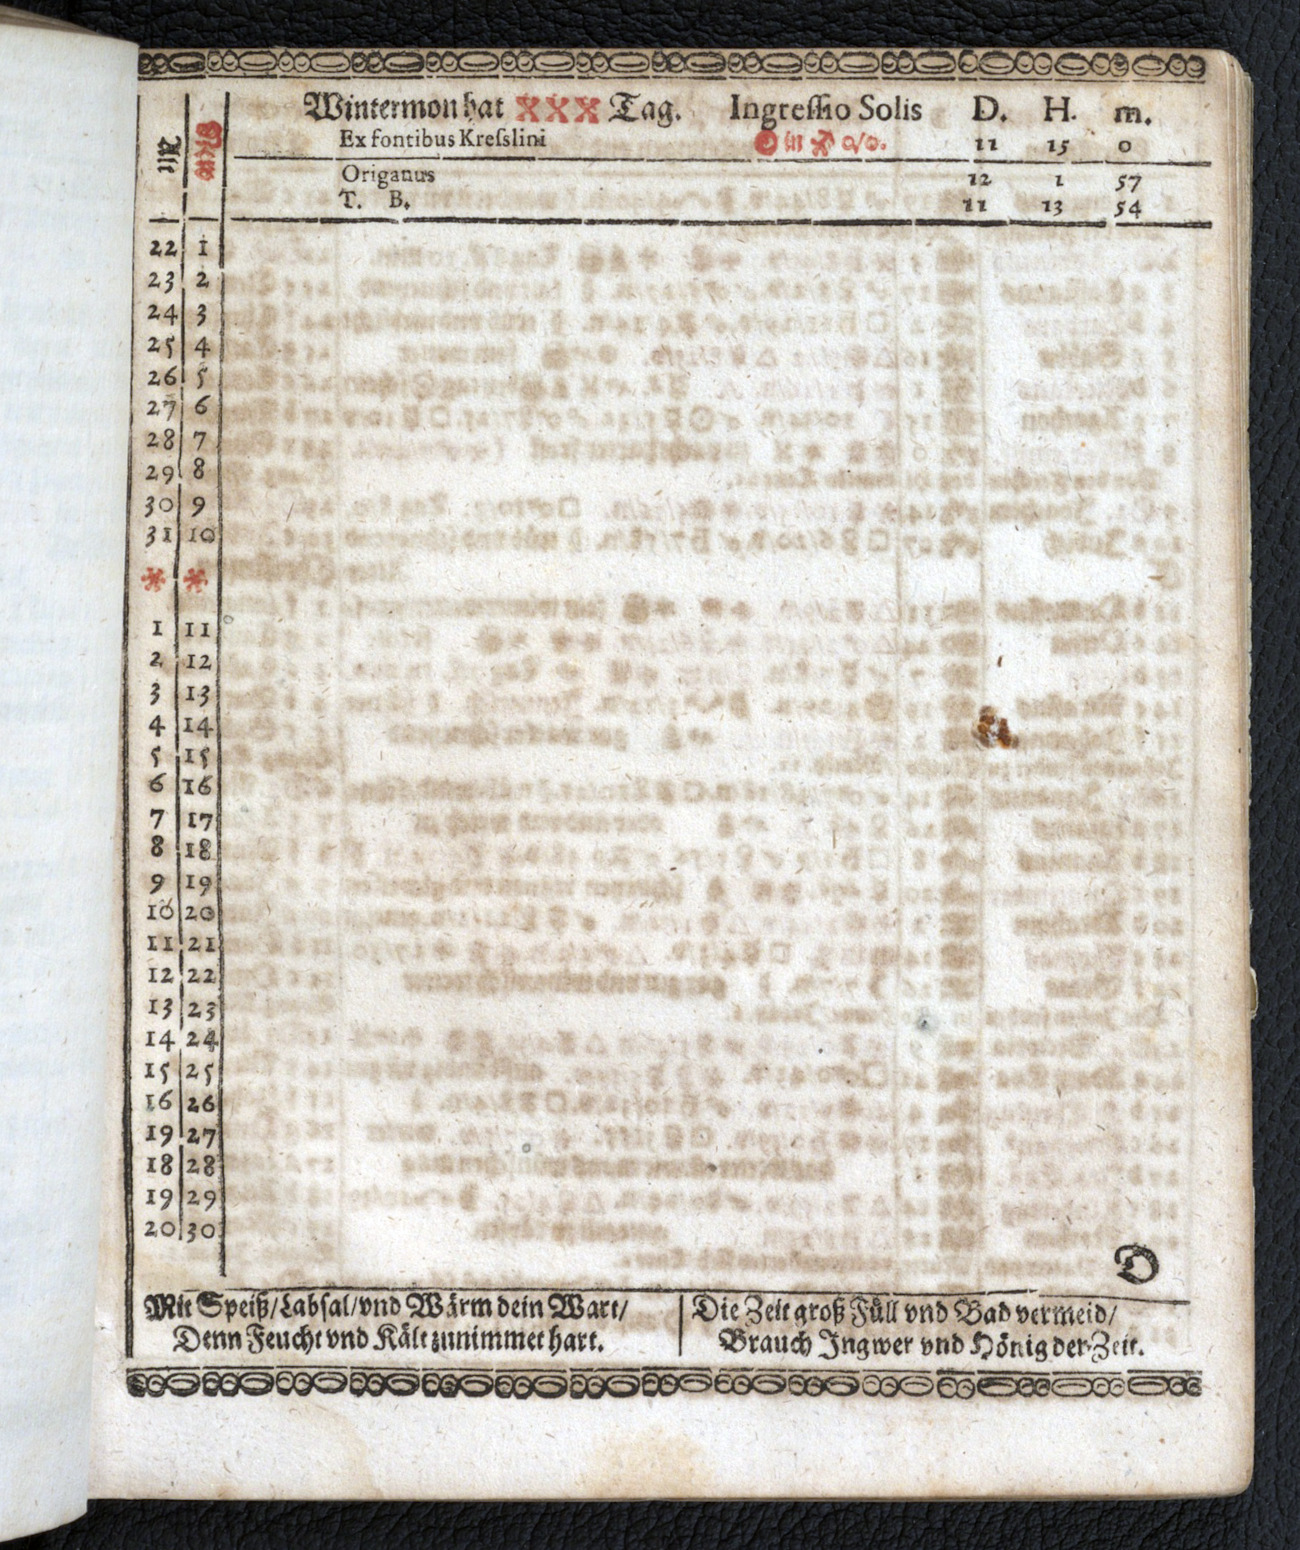 Wintermon hat XXX Tag. Ingressio Solis D. H. m.
Ex fontibus Kresslini ☉ in ♐ 11 15 0
Origanus 12 1 57
T. B. 11 13 54
Alt
22 1
23 2
24 3
25 4
26 5
27 6
28 7
29 8
30 9
31 10
* *
1 11
2 12
3 13
4 14
5 15
6 16
7 17
8 18
9 19
10 20
11 21
12 22
13 23
14 24
15 25
16 26
19 27
18 28
19 29
20 30
D
Mit Speiß/Labsal/vnd Wärm dein Wart/
Denn Feucht vnd Kält zunimmet hart.
Die Zeit groß Füll vnd Bad vermeid/
Brauch Ingwer vnd Hönig der Zeit.